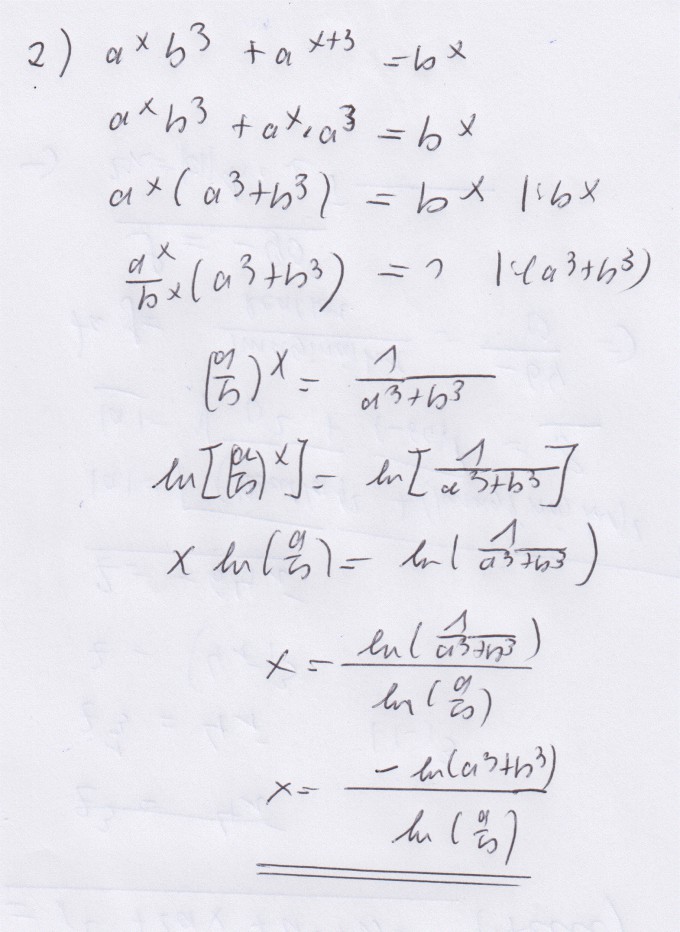 2) a^x b^3 + a^(x+3) = b^x
a^x b^3 + a^x · a^3 = b^x
a^x (a^3+b^3) = b^x |: b^x
a^x/b^x (a^3+b^3) = 1 |:(a^3+b^3)
(a/b)^x = 1/(a^3+b^3)
ln[(a/b)^x] = ln[1/(a^3+b^3)]
x ln(a/b) = ln(1/(a^3+b^3))
x = ln(1/(a^3+b^3)) / ln(a/b)
x = -ln(a^3+b^3) / ln(a/b)